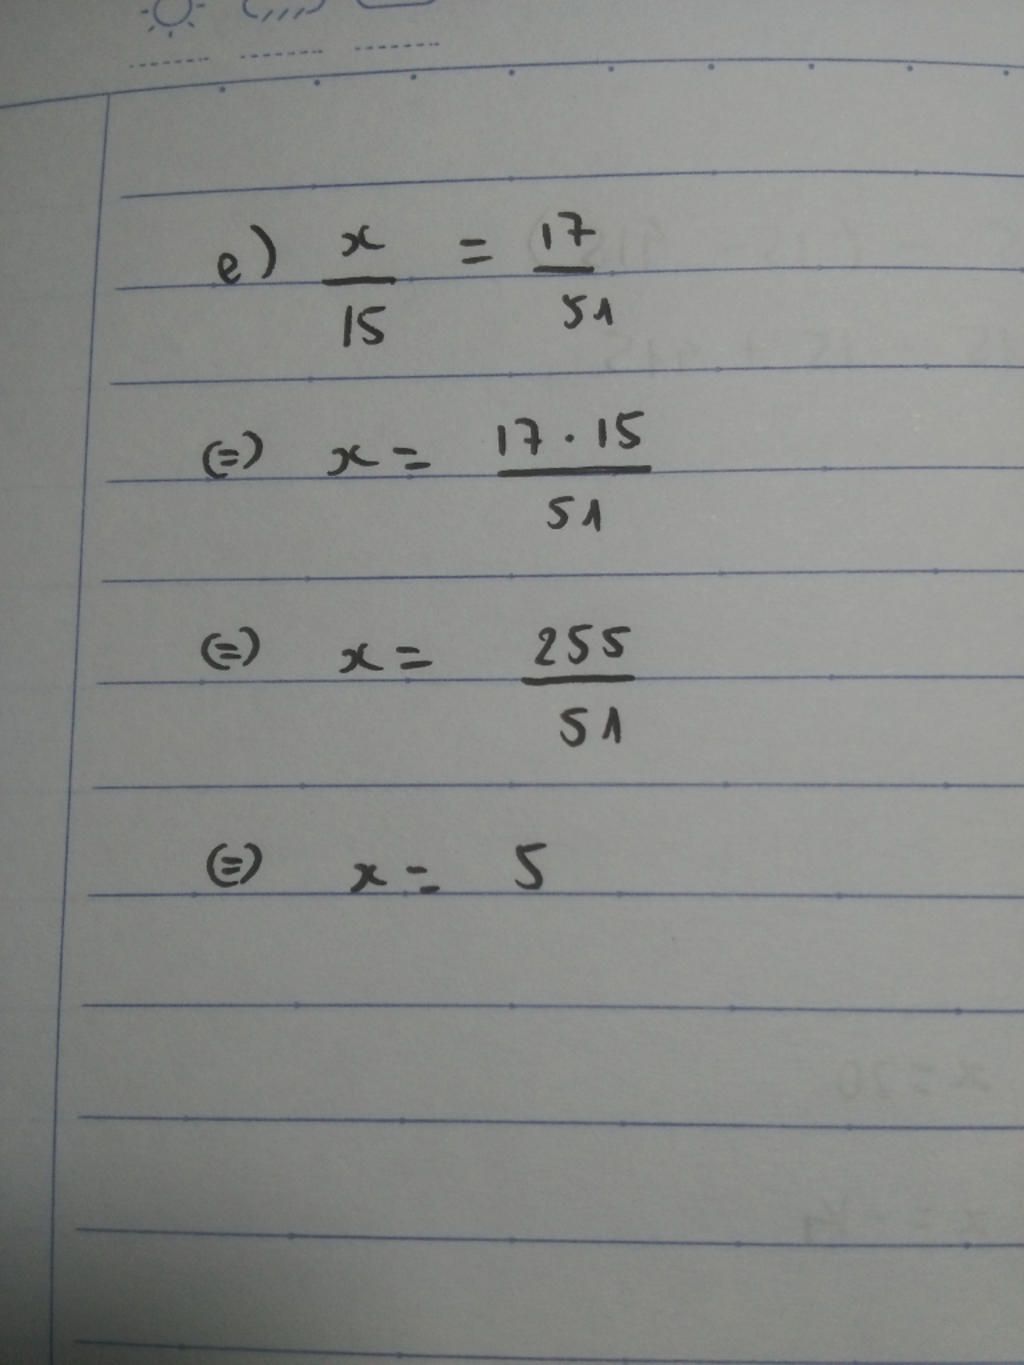 e) x/15 = 17/51
(=) x = 17 · 15/51
(=) x = 255/51
(=) x = 5